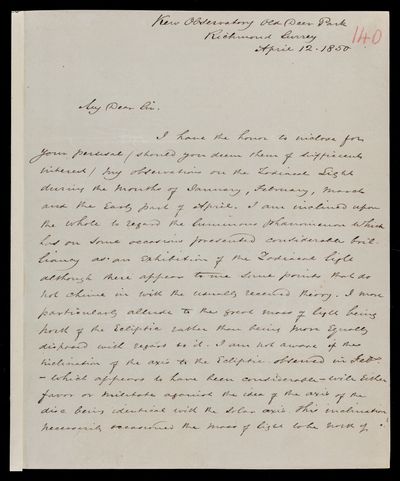 Kew Observatory Old Deer Park
Richmond Surrey
140
April 12 - 1850
My Dear Sir.
I have the honor to inclose for
your perusal / should you deem them of sufficient
interest / my observations on the Zodiacal Light
during the months of January, February, March
and the early part of April. I am inclined upon
the whole to regard the luminous phenomenon which
has on some occasions presented considerable bril-
liancy as an exhibition of the Zodiacal light
although there appear to me some points that do
not chime in with the usually received theory. I more
particularly allude to the great mass of light being
north of the Ecliptic rather than being more equally
disposed with regard to it. I am not aware if the
inclination of the axis to the Ecliptic observed in Feb
- which appears to have been considerable - will either
favor or militate against the idea of the axis of the
disc being identical with the Solar axis. This inclination
necessarily occasioned the mass of light to be north of